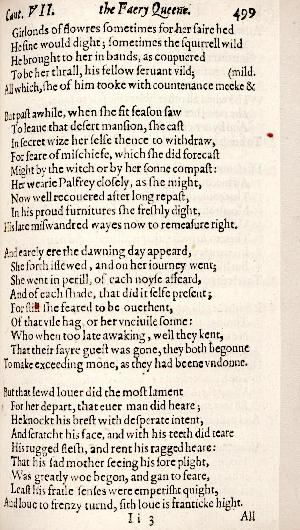 Cant. VII. the Faery Queene. 499
Girlonds of flowres sometimes for her faire hed
He fine would dight; sometimes the squirrell wild
He brought to her in bands, as conquered
To be her thrall, his fellow seruant vild; (mild.
All which, she of him tooke with countenance meeke &
But past awhile, when she fit season saw
To leaue that desert mansion, she cast
In secret wize her selfe thence to withdraw,
For feare of mischiefe, which she did forecast
Might by the witch or by her sonne compast:
Her wearie Palfrey closely, as she might,
Now well recouered after long repast,
In his proud furnitures she freshly dight,
His late miswandred wayes now to remeasure right.
And earely ere the dawning day appeard,
She forth issewed, and on her iourney went;
She went in perill, of each noyse affeard,
And of each shade, that did it selfe present;
For still she feared to be ouerhent,
Of that vile hag, or her vnciuile sonne:
Who when too late awaking, well they kent,
That their fayre guest was gone, they both begonne
To make exceeding mone, as they had beene vndonne.
But that lewd louer did the most lament
For her depart, that euer man did heare;
He knockt his brest with desperate intent,
And scratcht his face, and with his teeth did teare
His rugged flesh, and rent his ragged heare:
That his sad mother seeing his sore plight,
Was greatly woe begon, and gan to feare,
Least his fraile senses were emperisht quight,
And loue to frenzy turnd, sith loue is franticke hight.
Ii 3 All